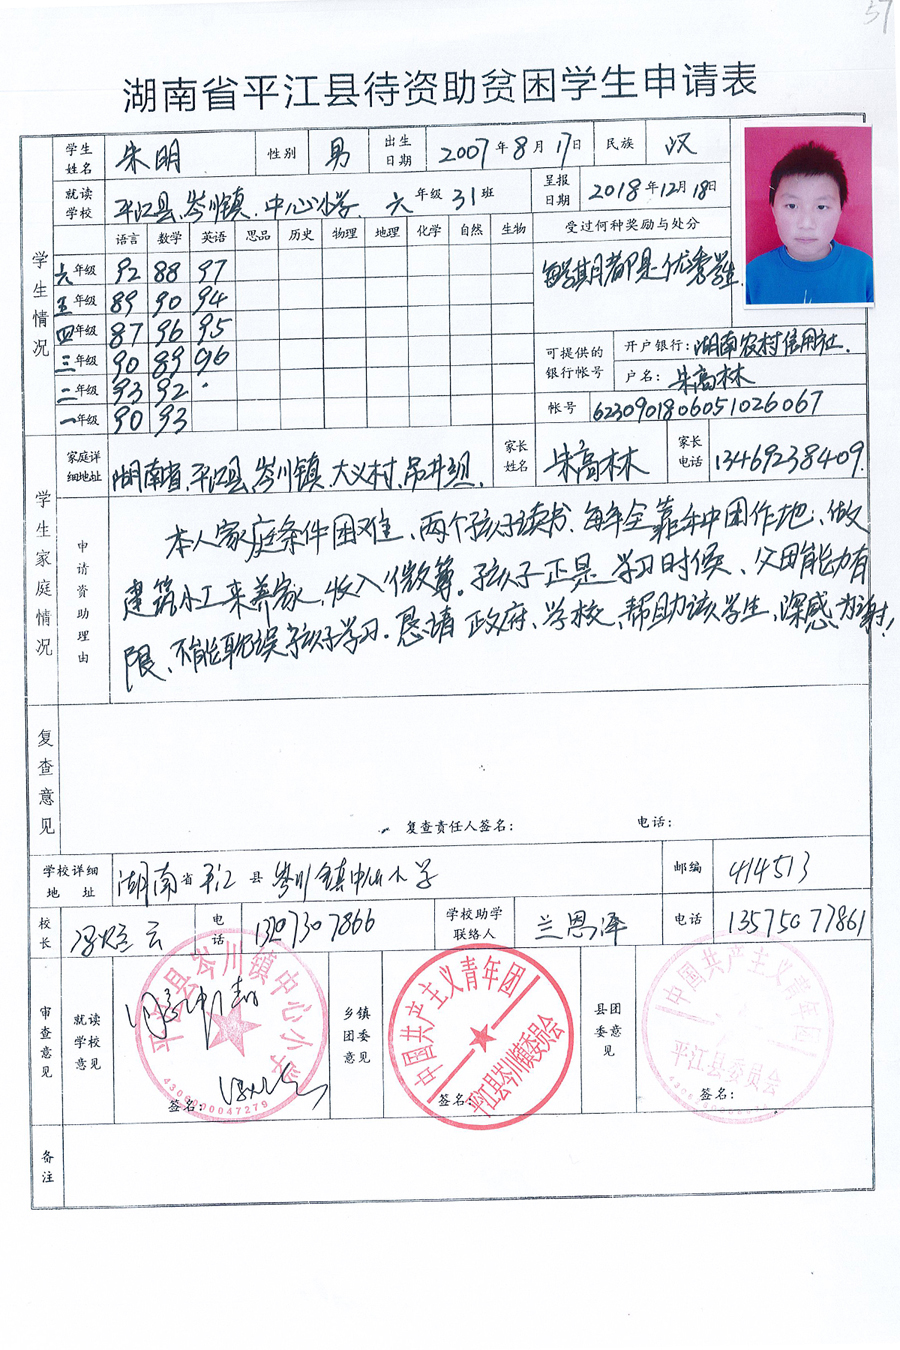 57
湖南省平江县待资助贫困学生申请表
学生情况
学生姓名 朱明 性别 男 出生日期 2007年8月17日 民族 汉
就读学校 平江县岑川镇中心小学 六年级 31班 呈报日期 2018年12月18日
语言 数学 英语 思品 历史 物理 地理 化学 自然 生物 受过何种奖励与处分
六年级 92 88 97
每学期都是优秀学生
五年级 89 90 94
四年级 87 96 95
三年级 90 89 96
二年级 93 92
一年级 90 93
可提供的银行帐号 开户银行:湖南农村信用社.
户名:朱高林
帐号 6230901806051026067
学生家庭情况
家庭详细地址 湖南省.平江县岑川镇大义村.吊井组. 家长姓名 朱高林 家长电话 13469238409.
申请资助理由
本人家庭条件困难、两个孩子读书、每年全靠种田作地、做
建筑小工来养家,收入微薄。孩子正是学习时候、父母能力有
限、不能耽误孩子学习.恳请政府、学校、帮助该学生,深感为谢!
复查意见
复查责任人签名: 电话:
学校详细地址 湖南省平江县岑川镇中心小学 邮编 414513
校长 电话 13207307866 学校助学联络人 兰恩泽 电话 13575077861
审查意见
就读学校意见 签名:
平江县岑川镇中心小学
4306000047279
乡镇团委意见 签名:
中国共产主义青年团
平江县岑川镇委员会
县团委意见 签名:
中国共产主义青年团
平江县委员会
备注